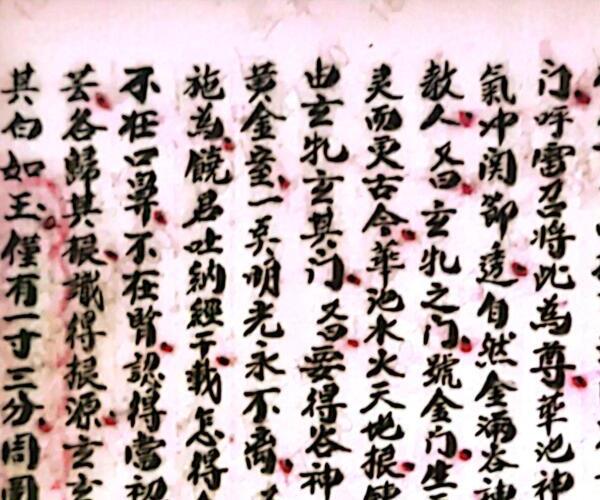 门呼雷召将此為尊華池神
氣冲関節透自然金滿谷神
教人又曰玄牝之门號金门生
灵而更古今華池水火天地根
由玄牝玄其门又曰要得谷神
黄金室一矣明光永不离
施為饒君吐納經千載怎得金
不在口鼻不在腎認得當初
芸各歸其根識得根源玄
其白如玉僅有一寸三分周圍